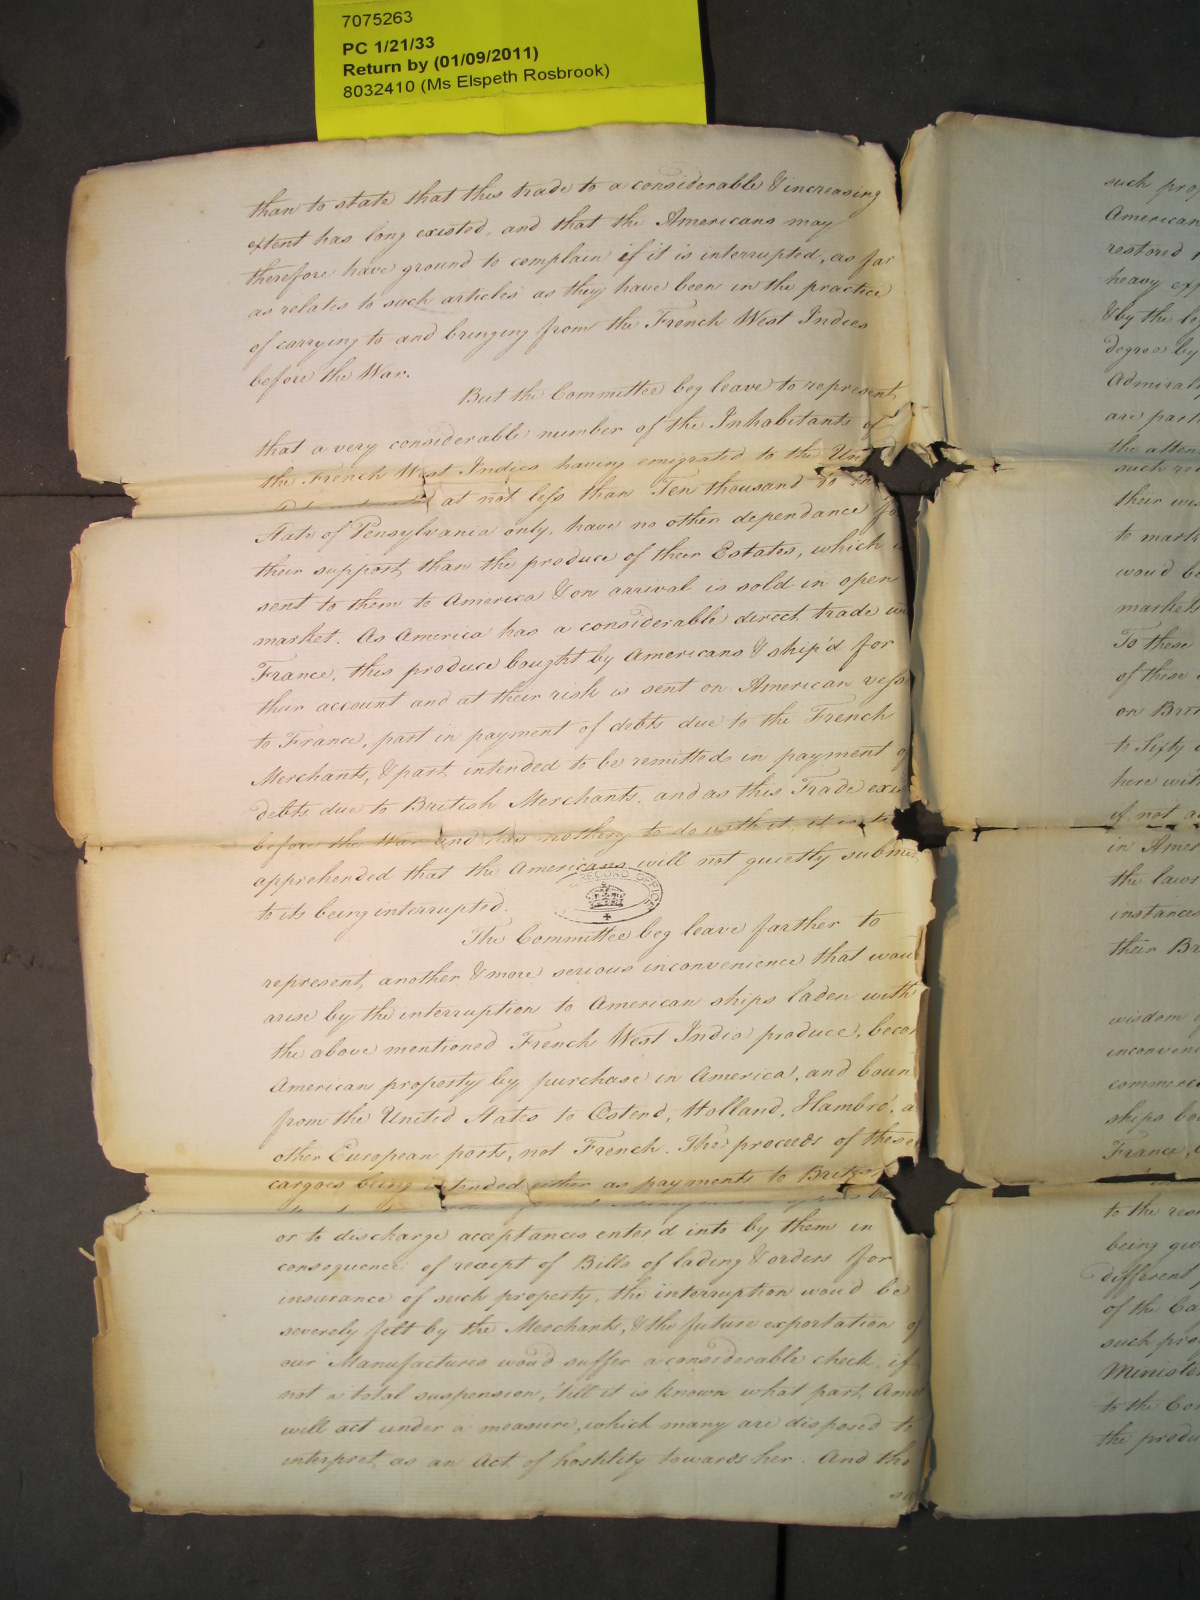 7075263
PC 1/21/33
Return by (01/09/2011)
8032410 (Ms Elspeth Rosbrook)
than to state that this trade to a considerable & increasing
extent has long existed, and that the Americans may
therefore have ground to complain if it is interrupted, as far
as relates to such articles as they have been in the practice
of carrying to and bringing from the French West Indies
before the War.
But the Committee beg leave to represent,
that a very considerable number of the Inhabitants of
the French West Indies having emigrated to the Un
at not less than Ten thousand to
State of Pensylvania only, have no other dependance fo
their support, than the produce of their Estates, which
sent to them to America & on arrival is sold in open
market. As America has a considerable direct trade
France, this produce bought by Americans & ship'd for
their account and at their risk is sent on American vess
to France, part in payment of debts due to the French
Merchants, & part intended to be remitted in payment o
debts due to British Merchants, and as this Trade exis
before the War and has nothing to do with it, it is to
apprehended that the Americans will not quietly submit
to its being interrupted.
RECORD OFFICE
The Committee beg leave farther to
represent, another & more serious inconvenience that wou
arise by the interruption to American ships laden with
the above mentioned French West India produce, becom
American property by purchase in America, and boun
from the United States to Ostend, Holland, Hambro', a
other European ports, not French. The proceeds of these
cargoes being intended either as payments to British
or to discharge acceptances enter'd into by them in
consequence of receipt of Bills of lading & orders for
insurance of such property, the interruption woud be
severely felt by the Merchants, & the future exportation of
our Manufactures woud suffer a considerable check, if
not a total suspension, 'till it is known what part Ame
will act under a measure, which many are disposed to
interpret, as an Act of hostility towards her. And the
such prop
American
restored
heavy exp
& by the
degree by
Admiral
are part
the atten
such
their
to mark
woud be
markets
To these
of these
on Bri
to Sixty
here wit
if not
in Amer
the laws
instances
their Br
wisdom
inconveni
commerc
ships bo
France,
to the res
being giv
different
of the Ca
such pro
Minister
to the Co
the produ